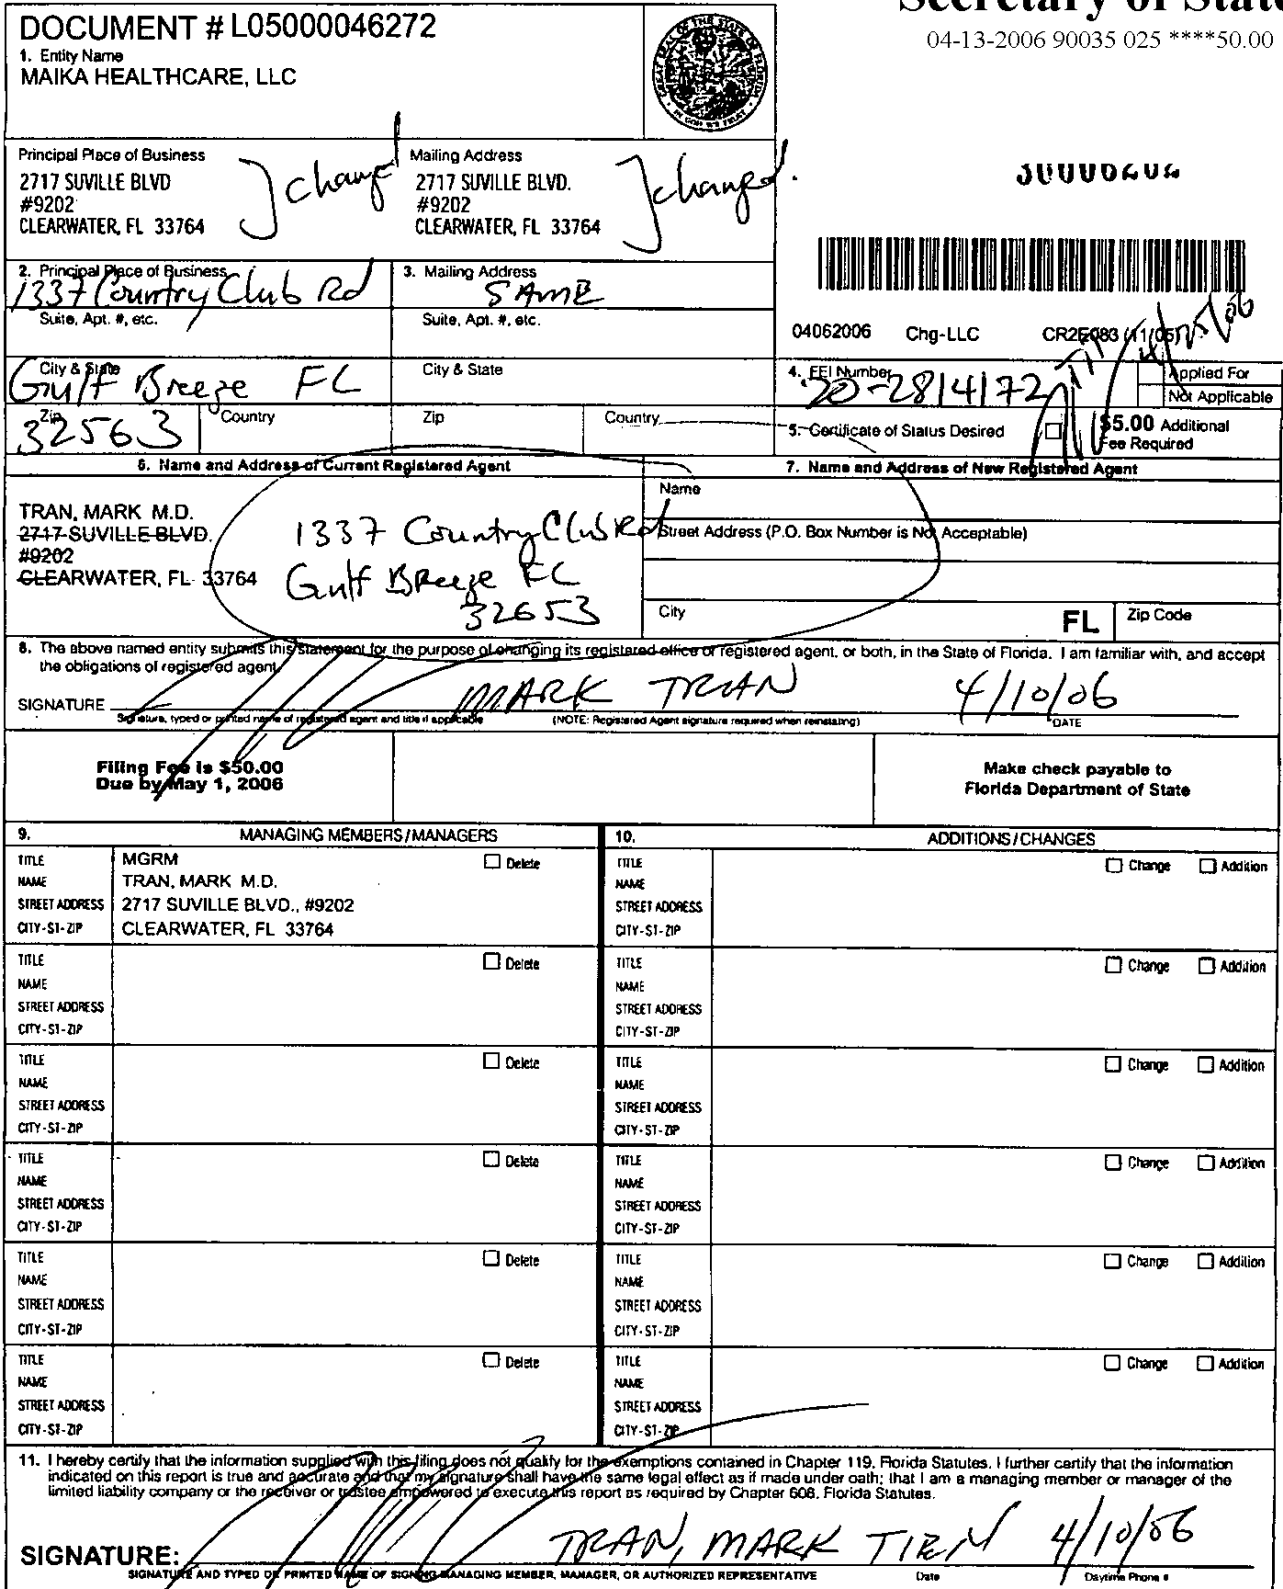 Secretary of State
04-13-2006 90035 025 ****50.00
DOCUMENT # L05000046272
1. Entity Name
MAIKA HEALTHCARE, LLC
GREAT SEAL OF THE STATE OF FLORIDA
IN GOD WE TRUST
Principal Place of Business
2717 SUVILLE BLVD
#9202
CLEARWATER, FL 33764
change
Mailing Address
2717 SUVILLE BLVD.
#9202
CLEARWATER, FL 33764
changed.
2. Principal Place of Business
1337 Country Club Rd
3. Mailing Address
SAME
Suite, Apt. #, etc.
Suite, Apt. #, etc.
04062006 Chg-LLC CR2E083 (11/05)
City & State
Gulf Breeze FL
City & State
4. FEI Number
20-2814172
Applied For
Not Applicable
Zip
32563
Country
Zip
Country
5. Certificate of Status Desired
$5.00 Additional
Fee Required
6. Name and Address of Current Registered Agent
7. Name and Address of New Registered Agent
TRAN, MARK M.D.
2717 SUVILLE BLVD.
#9202
CLEARWATER, FL 33764
1337 Country Club Rd
Gulf Breeze FL
32653
Name
Street Address (P.O. Box Number is Not Acceptable)
City
FL
Zip Code
8. The above named entity submits this statement for the purpose of changing its registered office or registered agent, or both, in the State of Florida. I am familiar with, and accept
the obligations of registered agent.
SIGNATURE
MARK TRAN 4/10/06
Signature, typed or printed name of registered agent and title if applicable
(NOTE: Registered Agent signature required when reinstating)
DATE
Filing Fee is $50.00
Due by May 1, 2006
Make check payable to
Florida Department of State
9. MANAGING MEMBERS/MANAGERS
10. ADDITIONS/CHANGES
TITLE MGRM Delete
NAME TRAN, MARK M.D.
STREET ADDRESS 2717 SUVILLE BLVD., #9202
CITY-ST-ZIP CLEARWATER, FL 33764
TITLE Change Addition
NAME
STREET ADDRESS
CITY-ST-ZIP
TITLE Delete
NAME
STREET ADDRESS
CITY-ST-ZIP
TITLE Change Addition
NAME
STREET ADDRESS
CITY-ST-ZIP
TITLE Delete
NAME
STREET ADDRESS
CITY-ST-ZIP
TITLE Change Addition
NAME
STREET ADDRESS
CITY-ST-ZIP
TITLE Delete
NAME
STREET ADDRESS
CITY-ST-ZIP
TITLE Change Addition
NAME
STREET ADDRESS
CITY-ST-ZIP
TITLE Delete
NAME
STREET ADDRESS
CITY-ST-ZIP
TITLE Change Addition
NAME
STREET ADDRESS
CITY-ST-ZIP
TITLE Delete
NAME
STREET ADDRESS
CITY-ST-ZIP
TITLE Change Addition
NAME
STREET ADDRESS
CITY-ST-ZIP
11. I hereby certify that the information supplied with this filing does not qualify for the exemptions contained in Chapter 119, Florida Statutes. I further certify that the information
indicated on this report is true and accurate and that my signature shall have the same legal effect as if made under oath; that I am a managing member or manager of the
limited liability company or the receiver or trustee empowered to execute this report as required by Chapter 608, Florida Statutes.
SIGNATURE:
TRAN, MARK TIEN 4/10/06
SIGNATURE AND TYPED OR PRINTED NAME OF SIGNING MANAGING MEMBER, MANAGER, OR AUTHORIZED REPRESENTATIVE
Date
Daytime Phone #